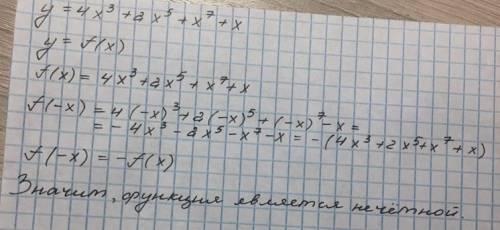 y = 4x³ + 2x⁵ + x⁷ + x
y = f(x)
f(x) = 4x³ + 2x⁵ + x⁷ + x
f(-x) = 4(-x)³ + 2(-x)⁵ + (-x)⁷ - x =
= - 4x³ - 2x⁵ - x⁷ - x = - (4x³ + 2x⁵ + x⁷ + x)
f(-x) = - f(x)
Значит, функция является нечётной.